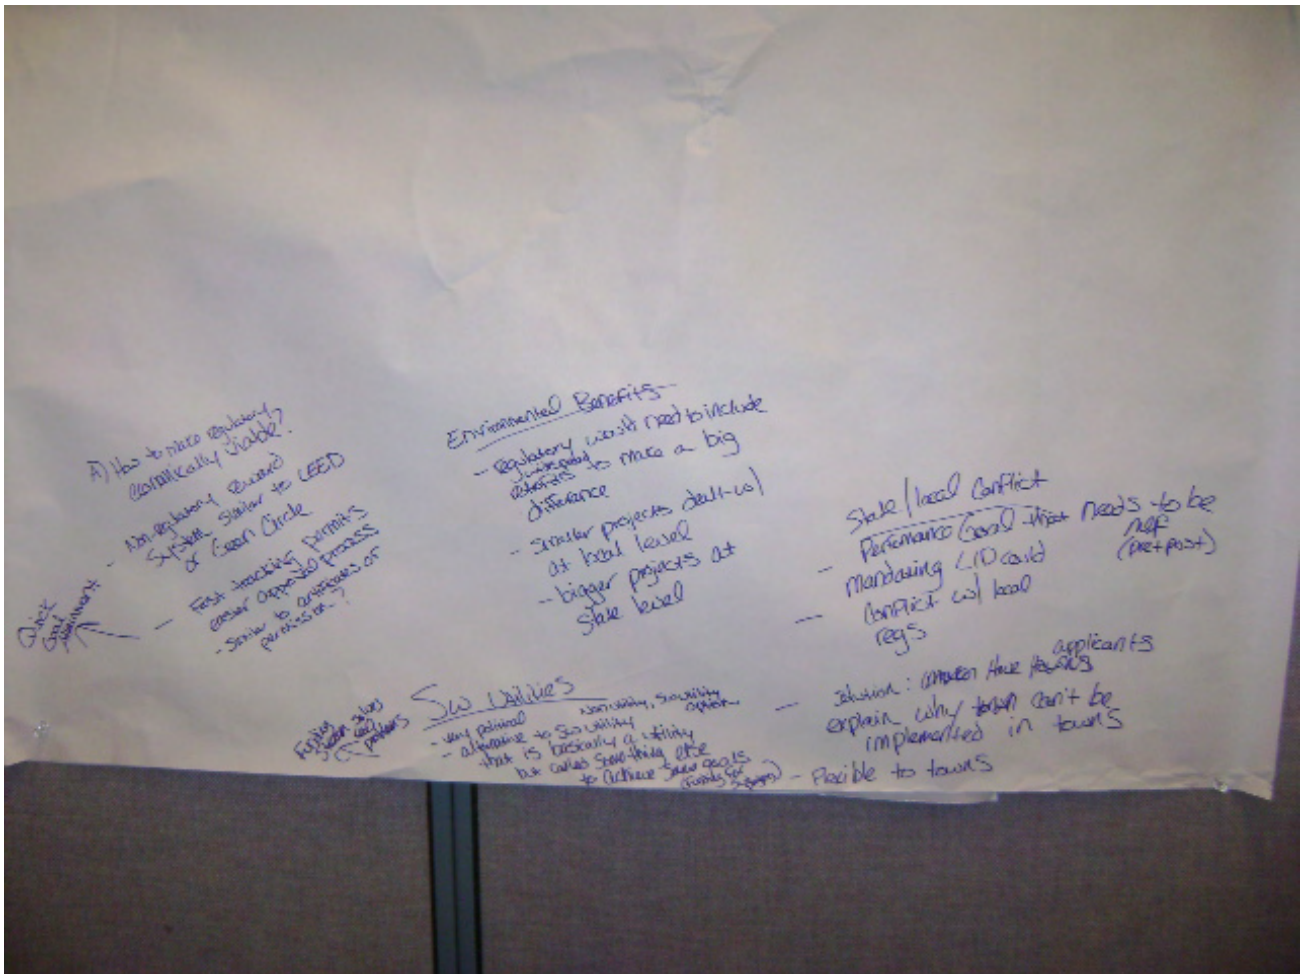 A) How to make regulatory
economically viable?
- Non-regulatory reward
system similar to LEED
or Green Circle
- Fast tracking permits
easier approval process
- Similar to certificates of
permission-?
Quick
Goal
Attainment
Environmental Benefits
- regulatory won't need to include
widespread
retrofits to make a big
difference
- Smaller projects dealt w/
at local level
- bigger projects at
State level
State/local Conflict
- Performance Goal that needs to be
met
(pre + post)
- mandating LID could
Conflict w/ local
regs
- Solution: have towns
applicants
explain why can't be
implemented in towns
- Flexible to towns
SW Utilities
- very political
- alternative to SW utility
Non utility, SW utility
option
that is basically a utility
but called something else
to achieve same goals
(Funds for
Funding